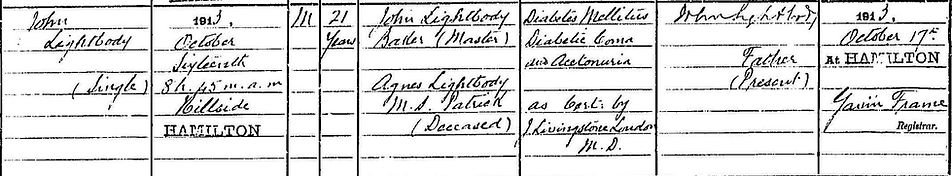 John
Lightbody
(Single)
1913,
October
Sixteenth
8 h. 45 m. a.m
Hillside
HAMILTON
M
21
Years
John Lightbody
Baker (Master)
Agnes Lightbody
M.S. Patrick
(Deceased)
Diabetes Mellitus
Diabetic Coma
and Acetonuria
as Cert. by
J. Livingstone Loudon
M.D.
John Lightbody
Father
(Present)
1913.
October 17th
At HAMILTON
Gavin Frame
Registrar.